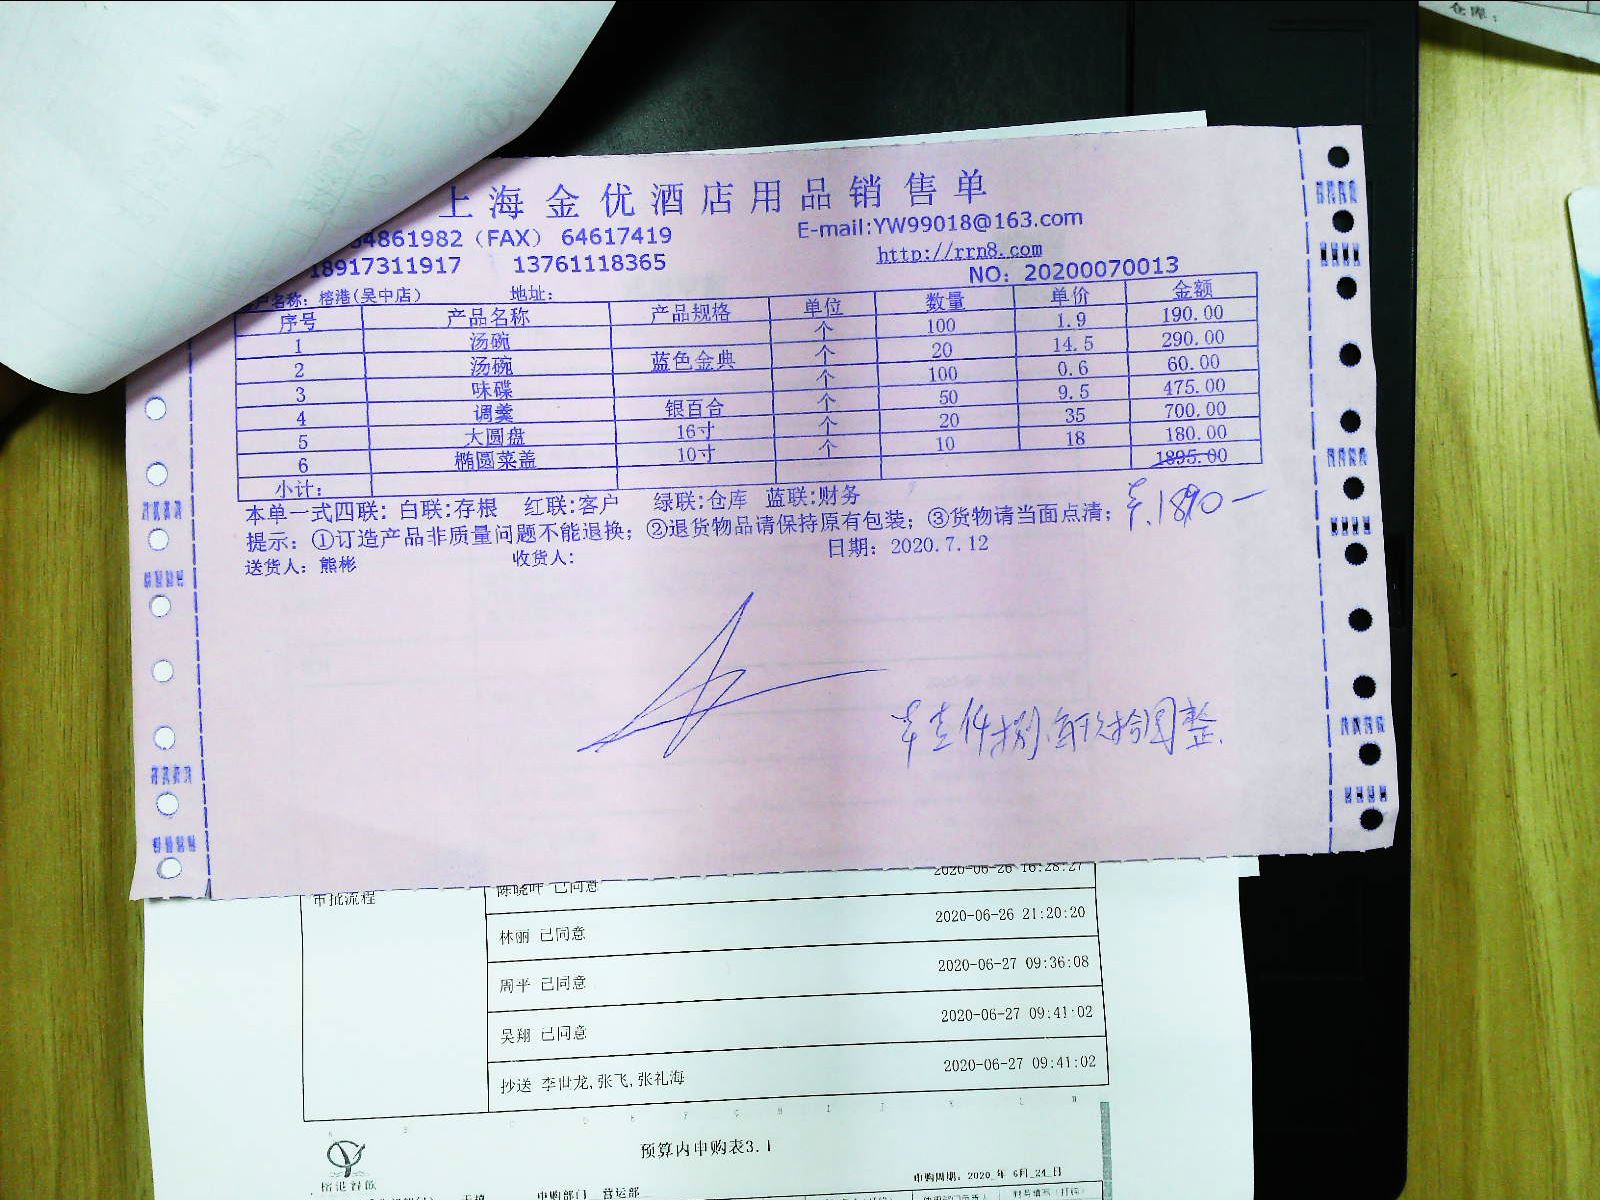 仓库:
上海金优酒店用品销售单
64861982 (FAX) 64617419
E-mail:YW99018@163.com
18917311917 13761118365
http://rrn8.com
NO: 20200070013
户名称: 榕港(吴中店) 地址:
序号 产品名称 产品规格 单位 数量 单价 金额
1 汤碗 个 100 1.9 190.00
2 汤碗 蓝色金典 个 20 14.5 290.00
3 味碟 个 100 0.6 60.00
4 调羹 银百合 个 50 9.5 475.00
5 大圆盘 16寸 个 20 35 700.00
6 椭圆菜盖 10寸 个 10 18 180.00
小计: 1895.00
本单一式四联: 白联:存根 红联:客户 绿联:仓库 蓝联:财务
1890-
提示: ①订造产品非质量问题不能退换; ②退货物品请保持原有包装; ③货物请当面点清;
送货人: 熊彬 收货人: 日期: 2020.7.12
审批流程
陈晓叶 已同意 2020-06-26 16:28:27
林丽 已同意 2020-06-26 21:20:20
周平 已同意 2020-06-27 09:36:08
吴翔 已同意 2020-06-27 09:41:02
抄送 李世龙,张飞,张礼海 2020-06-27 09:41:02
预算内申购表3.1
榕港餐饮
申购周期: 2020 年 6月_24_日
申购部门 营运部